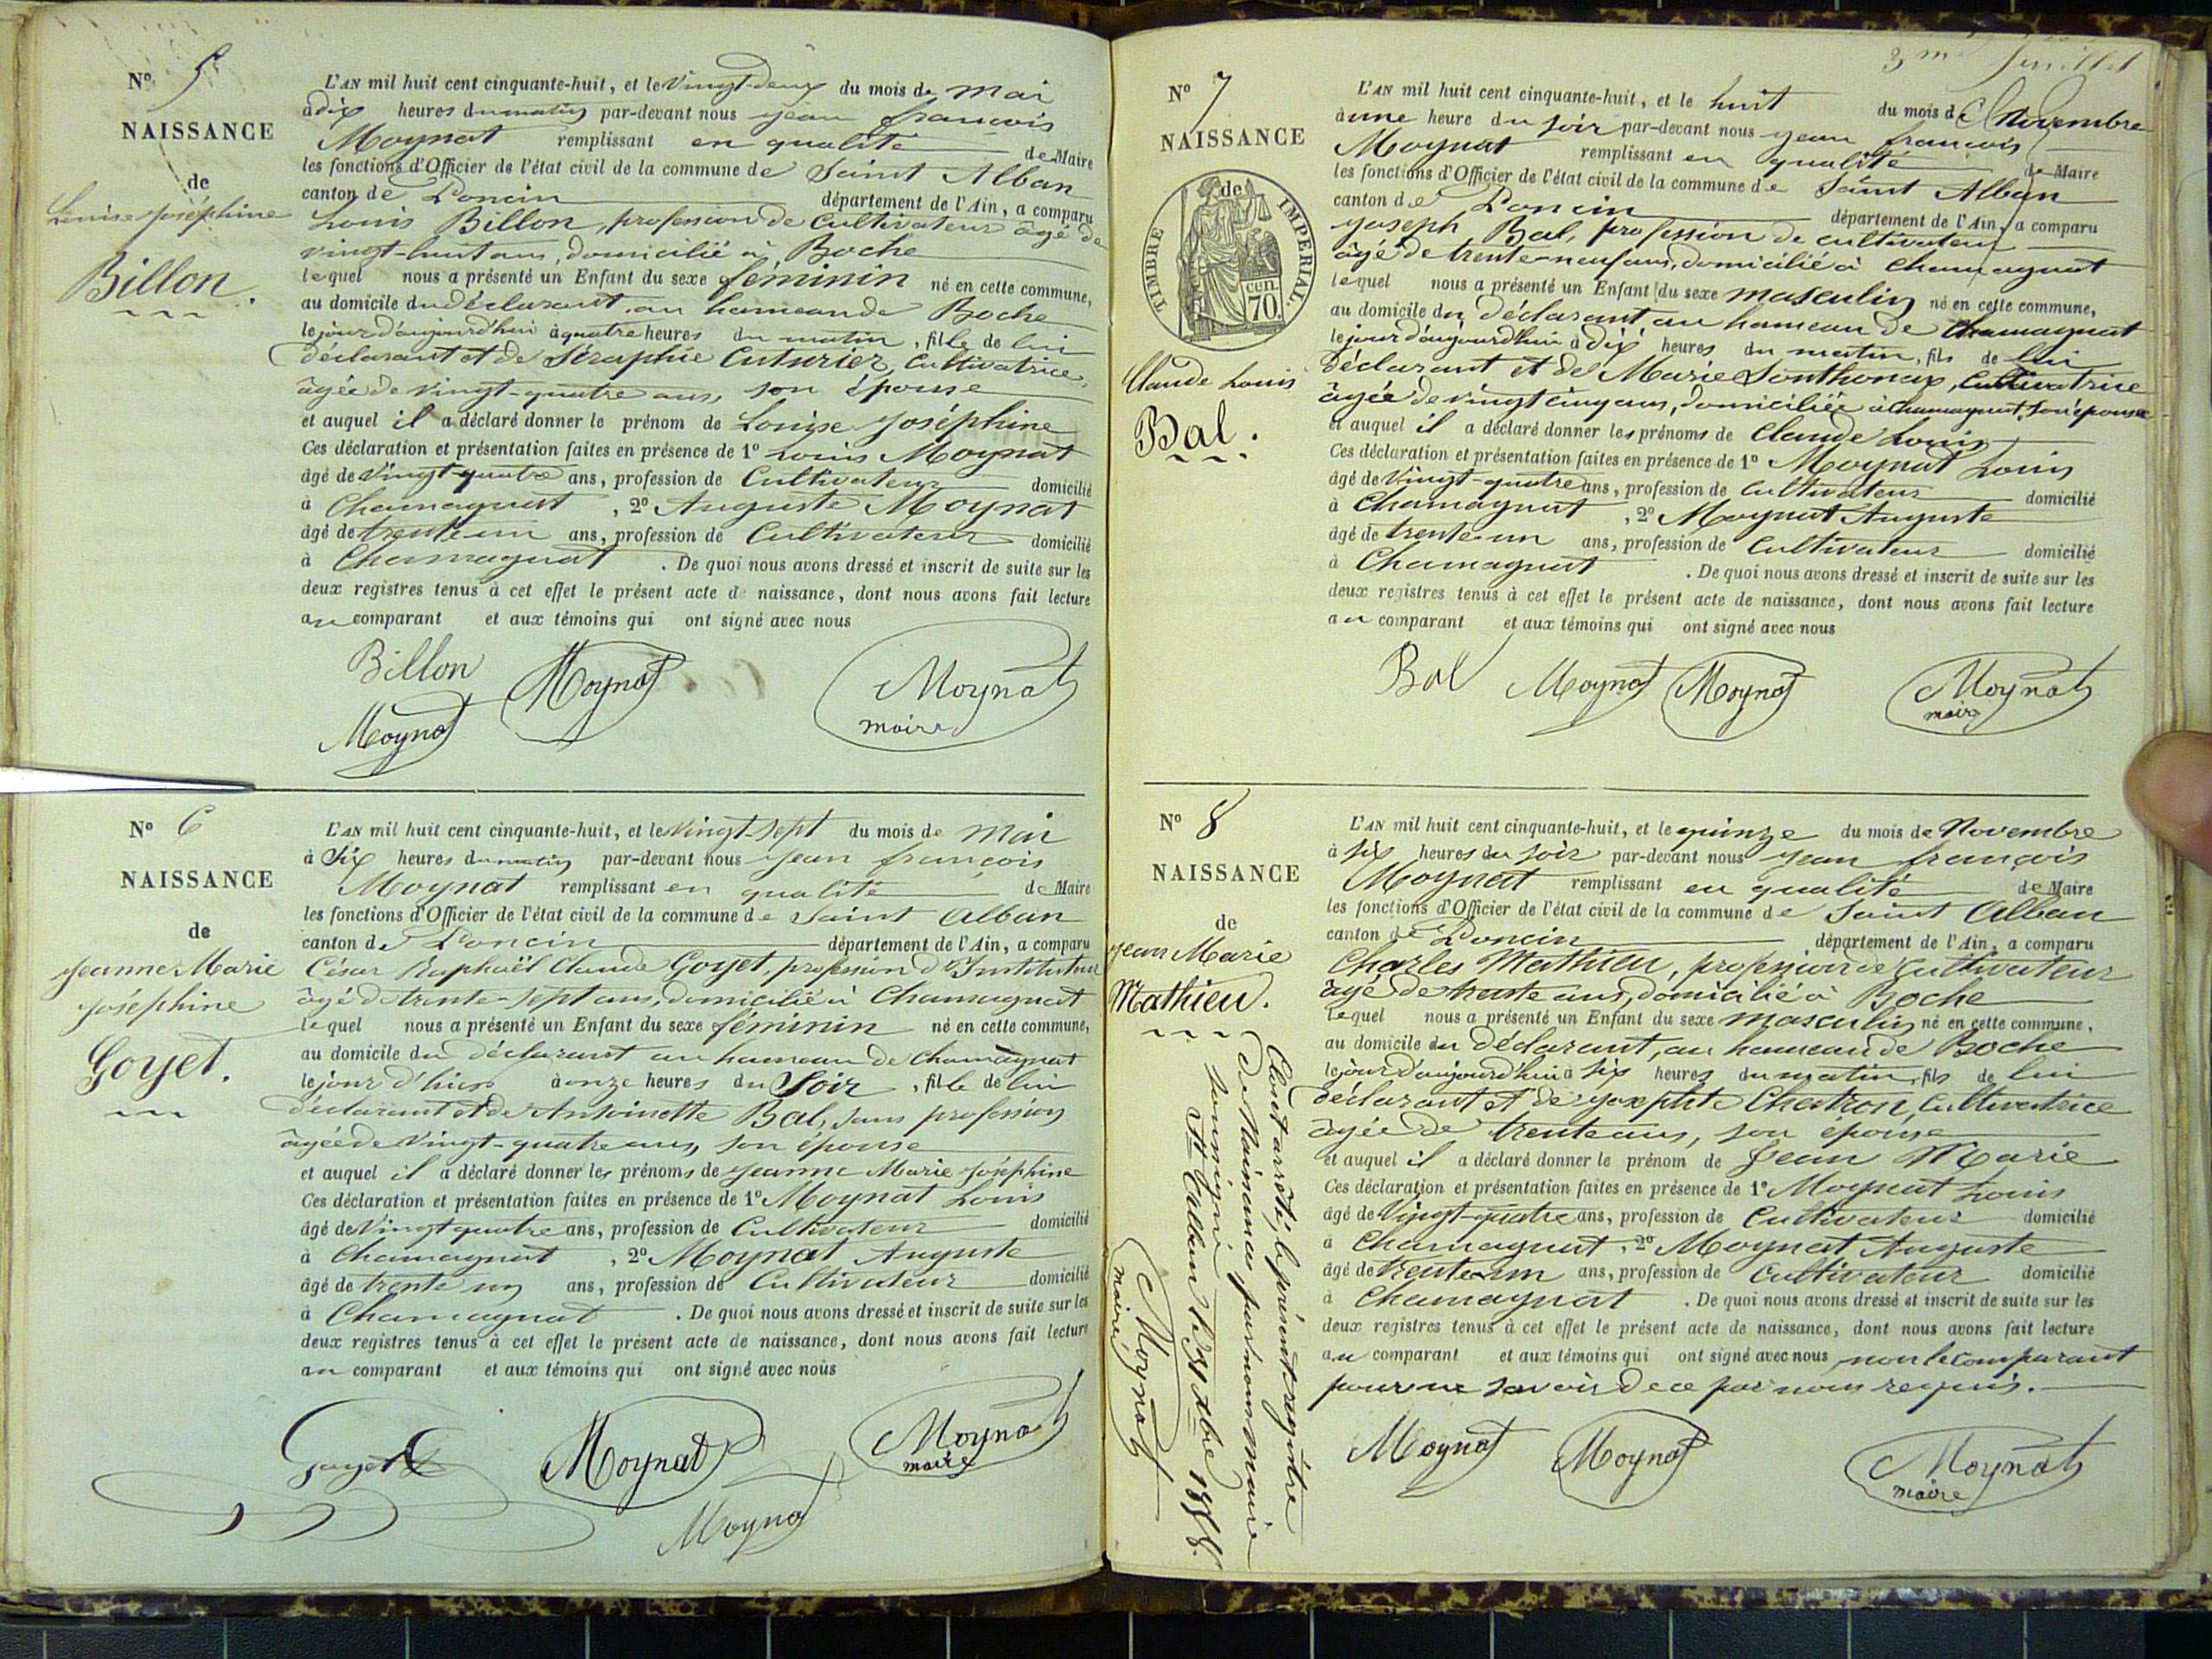 N° 5
NAISSANCE
de
Louise Joséphine
Billon.
L'AN mil huit cent cinquante-huit, et le Vingt-deux du mois de Mai
à dix heures du matin par-devant nous Jean françois
Moynat remplissant en qualité de Maire
les fonctions d'Officier de l'état civil de la commune de Saint Alban
canton de Poncin département de l'Ain, a comparu
Louis Billon, profession de Cultivateur âgé de
vingt-huit ans, domicilié à Boche
lequel nous a présenté un Enfant du sexe féminin né en cette commune,
au domicile du déclarant au hameau de Boche
le jour d'aujourd'hui à quatre heures du matin, fille de lui
déclarant et de Séraphie Cuturier, Cultivatrice,
âgée de vingt-quatre ans, son épouse
et auquel il a déclaré donner le prénom de Louise Joséphine
Ces déclaration et présentation faites en présence de 1° Louis Moynat
âgé de Vingt-quatre ans, profession de Cultivateur domicilié
à Chamagnat, 2° Auguste Moynat
âgé de trente un ans, profession de Cultivateur domicilié
à Chamagnat. De quoi nous avons dressé et inscrit de suite sur les
deux registres tenus à cet effet le présent acte de naissance, dont nous avons fait lecture
au comparant et aux témoins qui ont signé avec nous
Billon Moynat Moynat
Moynat maire
N° 6
NAISSANCE
de
Jeanne Marie
Joséphine
Goyet.
L'AN mil huit cent cinquante-huit, et le Vingt-sept du mois de Mai
à six heures du matin par-devant nous Jean françois
Moynat remplissant en qualité de Maire
les fonctions d'Officier de l'état civil de la commune de Saint Alban
canton de Poncin département de l'Ain, a comparu
César Raphaël Claude Goyet, profession d'Instituteur
âgé de trente-sept ans, domicilié à Chamagnat
lequel nous a présenté un Enfant du sexe féminin né en cette commune,
au domicile du déclarant au hameau de Chamagnat
le jour d'hier à onze heures du Soir, fille de lui
déclarant et de Antoinette Bal, sans profession
âgée de Vingt-quatre ans, son épouse
et auquel il a déclaré donner les prénoms de Jeanne Marie Joséphine
Ces déclaration et présentation faites en présence de 1° Moynat Louis
âgé de Vingt quatre ans, profession de Cultivateur domicilié
à Chamagnat, 2° Moynat Auguste
âgé de trente un ans, profession de Cultivateur domicilié
à Chamagnat. De quoi nous avons dressé et inscrit de suite sur les
deux registres tenus à cet effet le présent acte de naissance, dont nous avons fait lecture
au comparant et aux témoins qui ont signé avec nous
Goyet Moynat Moynat
maire
Moynat
3me feuillet
N° 7
NAISSANCE
de
TIMBRE IMPÉRIAL.
70 cen.
Claude Louis
Bal.
L'AN mil huit cent cinquante-huit, et le huit du mois de Novembre
à une heure du soir par-devant nous Jean françois
Moynat remplissant en qualité de Maire
les fonctions d'Officier de l'état civil de la commune de Saint Alban
canton de Poncin département de l'Ain, a comparu
Joseph Bal, profession de cultivateur
âgé de trente-neuf ans, domicilié à Chamagnat
lequel nous a présenté un Enfant du sexe masculin né en cette commune,
au domicile du déclarant au hameau de Chamagnat
le jour d'aujourd'hui à dix heures du matin, fils de lui
déclarant et de Marie Sonthonax, Cultivatrice
âgée de vingt cinq ans, domiciliée à Chamagnat, son épouse
et auquel il a déclaré donner les prénoms de Claude Louis
Ces déclaration et présentation faites en présence de 1° Moynat Louis
âgé de Vingt-quatre ans, profession de Cultivateur domicilié
à Chamagnat, 2° Moynat Auguste
âgé de trente un ans, profession de Cultivateur domicilié
à Chamagnat. De quoi nous avons dressé et inscrit de suite sur les
deux registres tenus à cet effet le présent acte de naissance, dont nous avons fait lecture
au comparant et aux témoins qui ont signé avec nous
Bal Moynat Moynat Moynat
maire
N° 8
NAISSANCE
de
Jean Marie
Mathieu.
Clos et arrêté, le présent registre
de Naissances par nous maire
soussigné
St Alban le 31 Xbre 1858.
Moynat
maire
L'AN mil huit cent cinquante-huit, et le quinze du mois de Novembre
à six heures du soir par-devant nous Jean françois
Moynat remplissant en qualité de Maire
les fonctions d'Officier de l'état civil de la commune de Saint Alban
canton de Poncin département de l'Ain, a comparu
Charles Mathieu, profession de Cultivateur
âgé de trente ans, domicilié à Boche
lequel nous a présenté un Enfant du sexe masculin né en cette commune,
au domicile du déclarant, au hameau de Boche
le jour d'aujourd'hui à six heures du matin, fils de lui
déclarant et de Josephte Chatron, Cultivatrice
âgée de trente ans, son épouse
et auquel il a déclaré donner le prénom de Jean Marie
Ces déclaration et présentation faites en présence de 1° Moynat Louis
âgé de Vingt-quatre ans, profession de Cultivateur domicilié
à Chamagnat, 2° Moynat Auguste
âgé de trente un ans, profession de Cultivateur domicilié
à Chamagnat. De quoi nous avons dressé et inscrit de suite sur les
deux registres tenus à cet effet le présent acte de naissance, dont nous avons fait lecture
au comparant et aux témoins qui ont signé avec nous non le comparant
pour ne savoir de ce par nous requis.
Moynat Moynat Moynat
maire